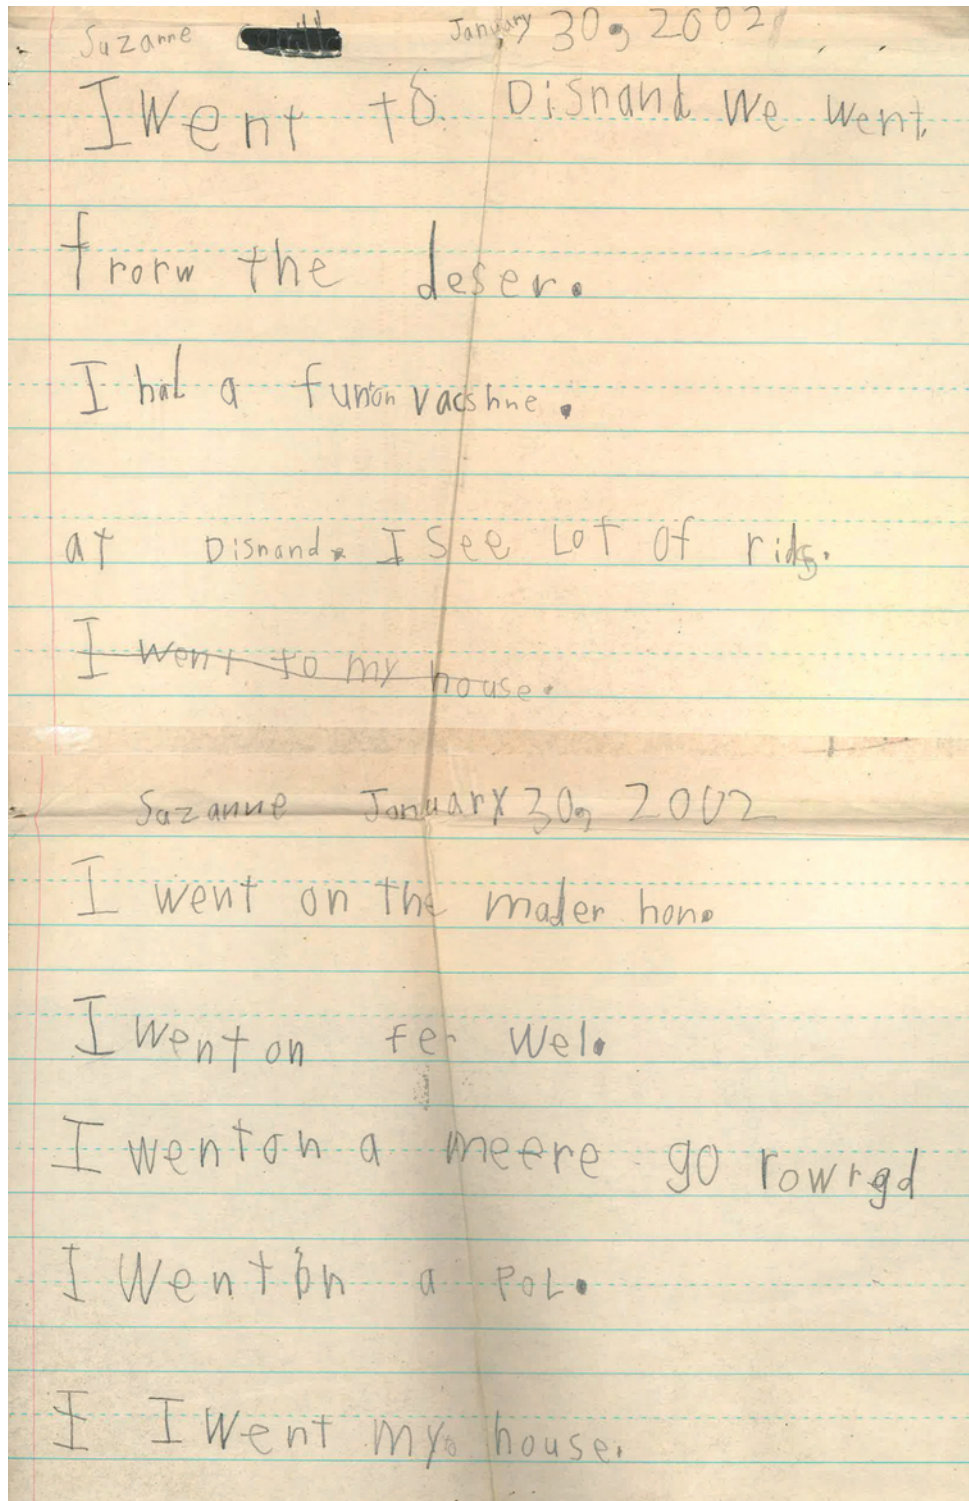 Suzanne January 30, 2002
I Went to Disnand We went
frorw the deser.
I had a fun on vacshne.
at Disnand. I See Lot of rids.
I went to my house.
Suzanne January 30, 2002
I went on the mader hon.
I Went on fer Wel.
I went on a meere go rowrgd
I Went on a Pol.
I I Went my to house.